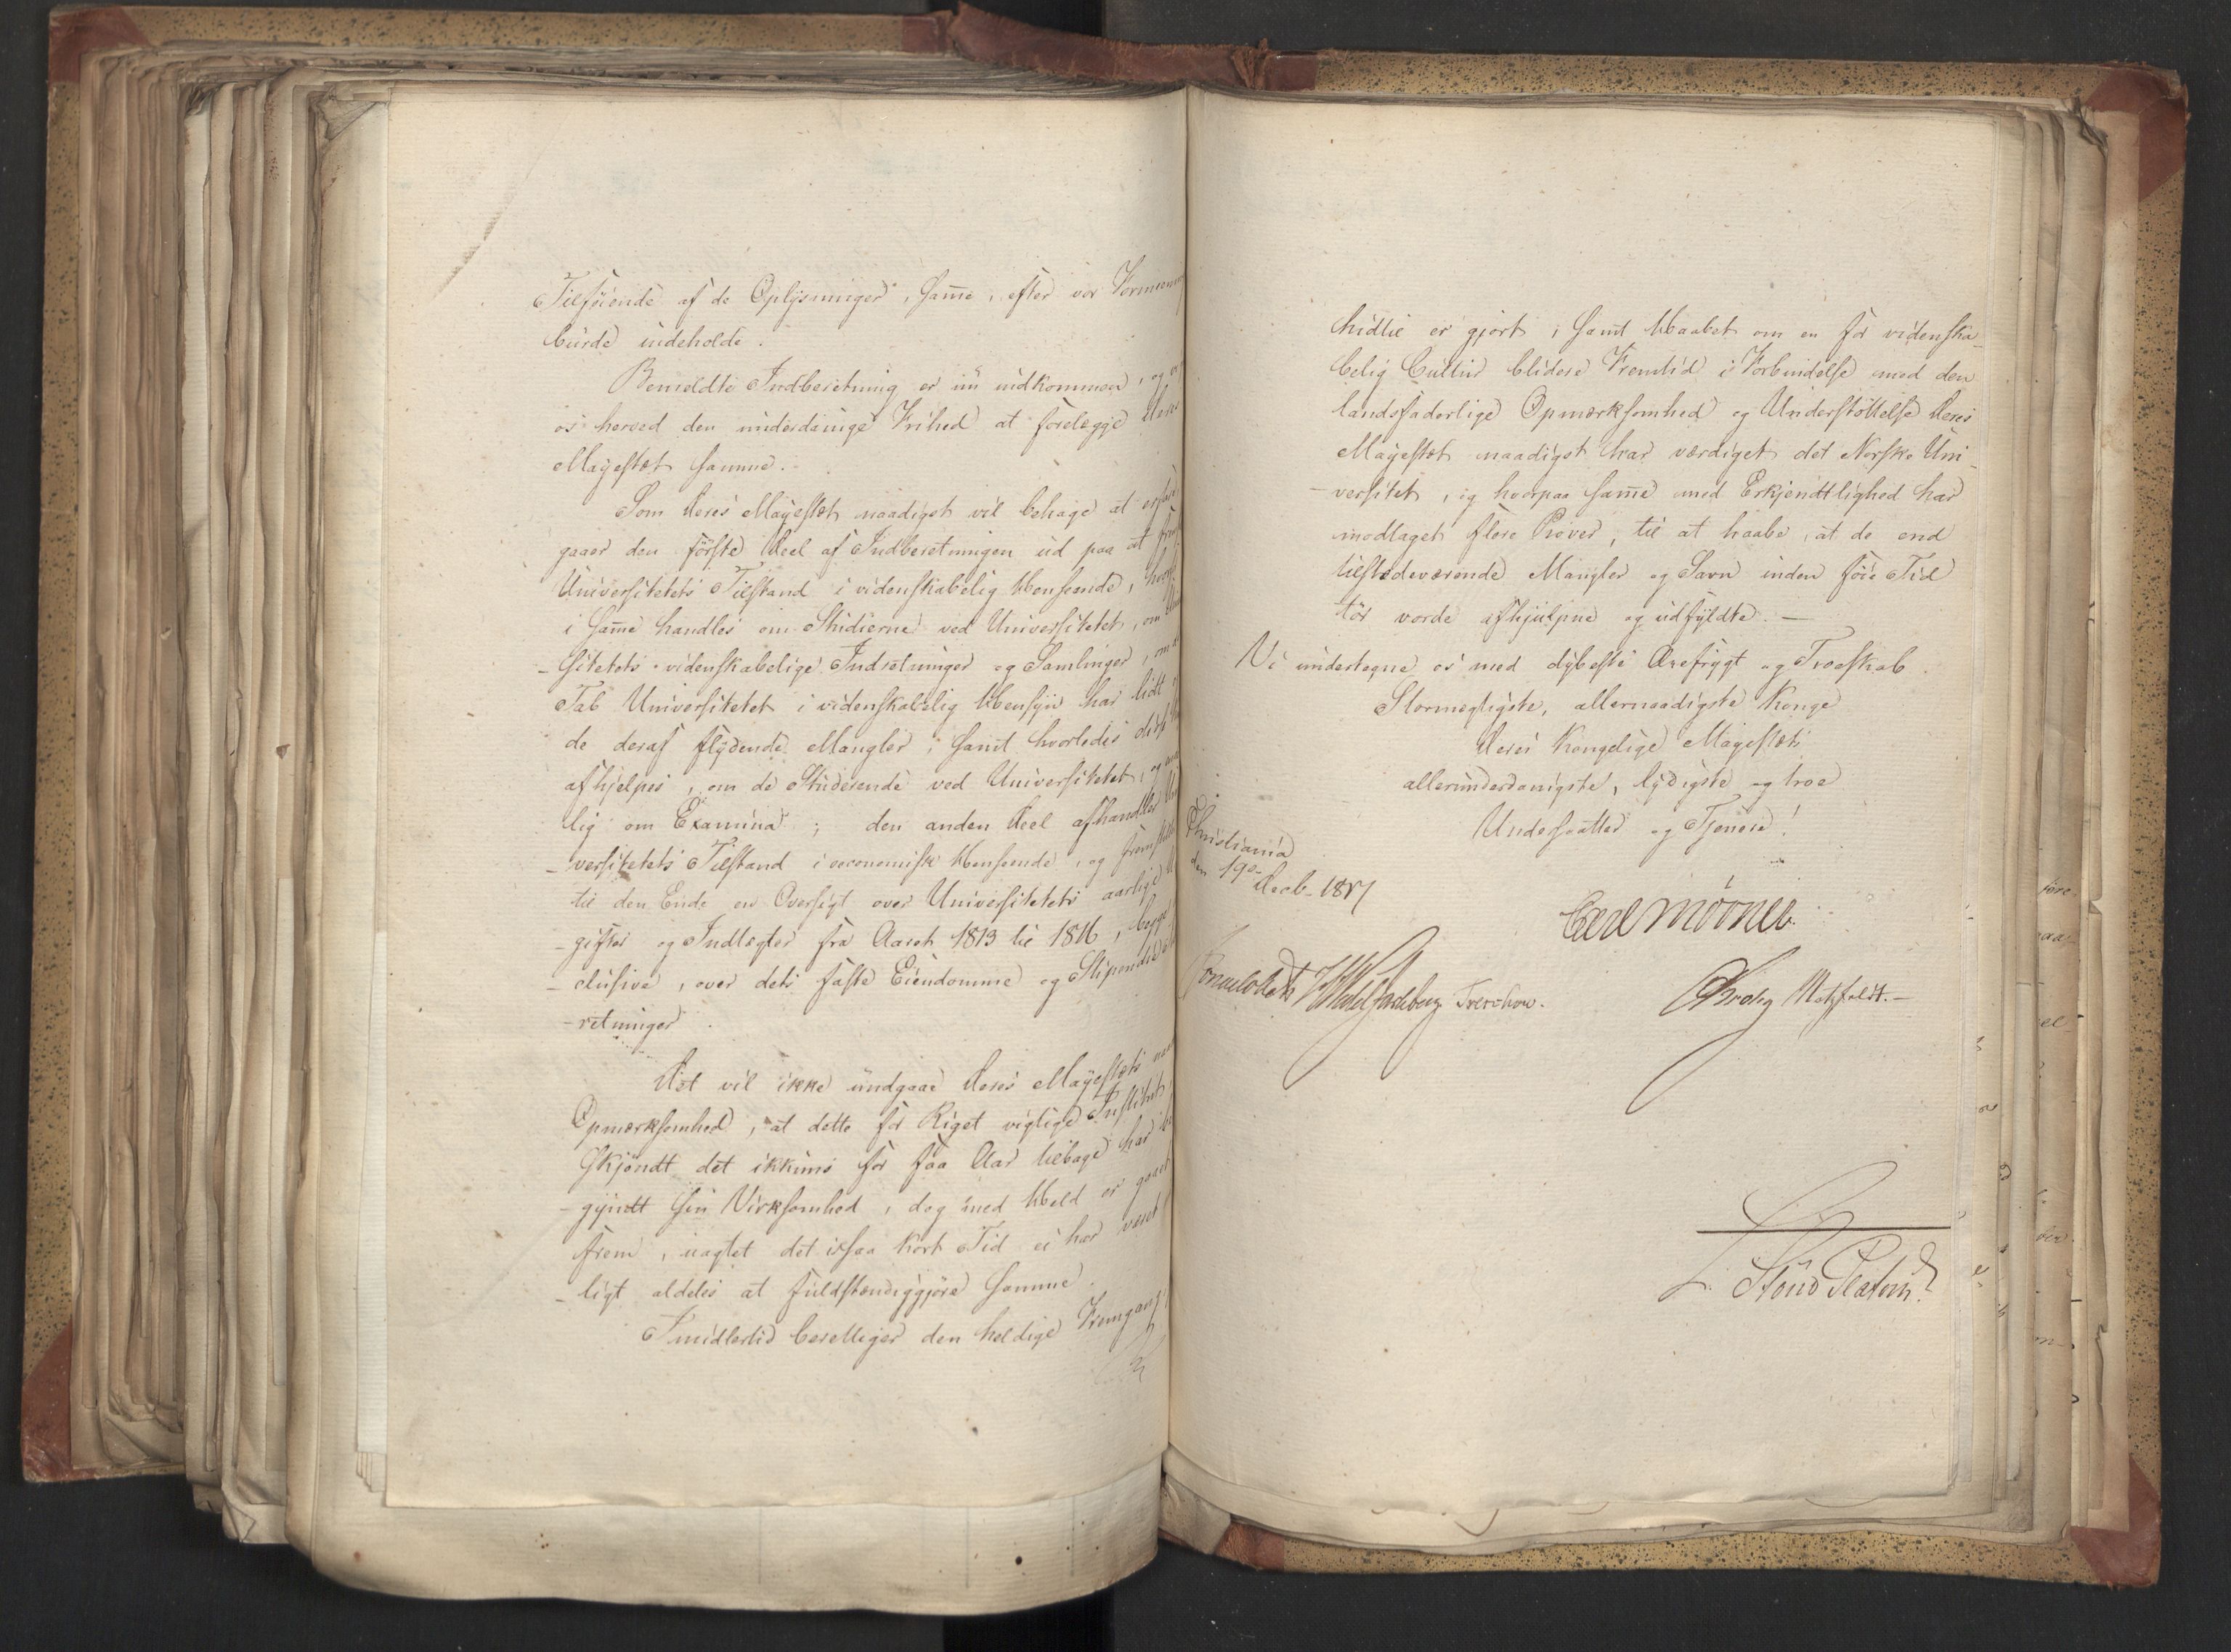 Tilføiende af de Oplysninger, same, efter vor Formeening
burde indeholde.
Bemeldte Indberetning er nu indkommen, og
os herved den underdanige Frihed at forelægge Deres
Mayestæt samme.
Som Deres Mayestæt naadigst vil behage at erfare
gaaer den første Deel af Indberetningen ud paa at
Universitetets Tilstand i videnskabelig Henseende,
i same handles om Studierne ved Universitetet, om
-sitetets videnskabelige Indretninger og Samlinger, om
Tab Universitetet i videnskabelig Hensyn har lidt
de deraf flydende Mangler, samt hvorledes disse
afhjelpes, om de Studerende ved Universitetet, og
lig om Examina; den anden Deel afhandler
-versitetets Tilstand i oeconomisk Henseende, og
til den Ende en Oversigt over Universitetets aarlige
-gifter og Indtægter fra Aaret 1813 til 1816, begge
-clusive, over dets faste Eiendomme og Stipendie
-retninger.
Det vil ikke undgaae Deres Mayestæts
Opmærksomhed, at dette for Riget vigtige Institut,
skjøndt det ikkuns for faa Aar tilbage har
-gyndt sin Virksomhed, dog med Held er gaaet
frem, uagtet det i saa kort Tid ei har været
-ligt aldeles at fuldstændiggjøre samme.
Imidlertid berettiger den heldige Fremgang,
hidtil er gjort, samt Haabet om en for videnska-
belig Cultur blidere Fremtid i Forbindelse med den
landsfaderlige Opmærksomhed og Understøttelse Deres
Mayestæt naadigst har værdiget det Norske Uni-
-versitet, og hvorpaa same med Erkjendtlighed har
modtaget flere Prøver, til at haabe, at de end
tilstedeværende Mangler og Savn inden føie Tid
tør vorde afhjulpne og udfyldte. —
Vi undertegne os med dybeste Ærefrygt og Troeskab.
Stormægtigste, allernaadigste Konge
Deres Kongelige Mayestæts
allerunderdanigste, lydigste og troe
Undersaatter og Tjenere!
Christiania
den 19de Decb. 1817
Carl Mörner
Sommerhielm HWedelJarlsberg Treschow. Krohg Motzfeldt. —
L. Stoud Platou